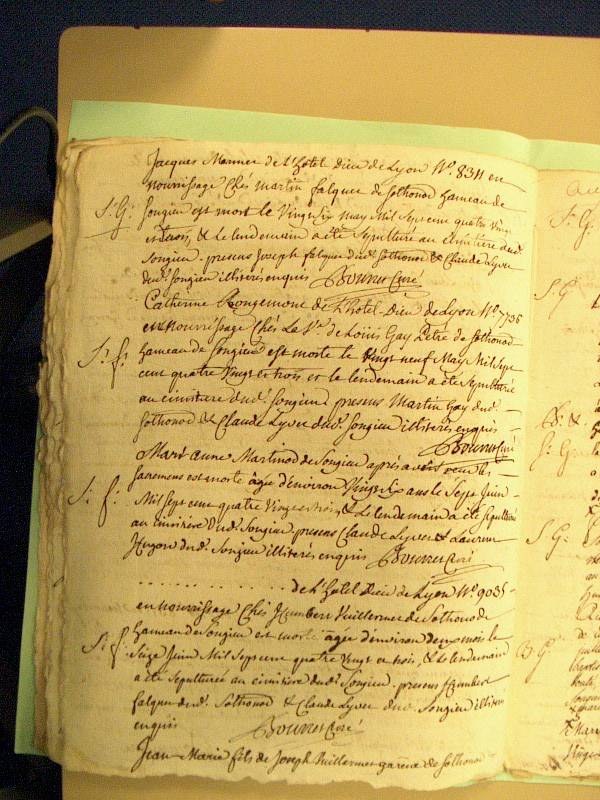 Jacques Marmier de L'hôtel Dieu de Lyon N.º 8311 en
nourrissage Chés Martin falquet de Sothonod hameau de
S. G. Songieu est mort le Vingt Six may Mil Sept cent quatre Vingt
et trois, & le lendemain a été Sepulturé au cimitière dud.
Songieu. presens Joseph falquet dud. Sothonod & Claude Lyvet
dud. Songieu illiterés enquis Bouvret Curé
Catherine Rougemont de L'hotel-Dieu de Lyon N.º 7736
en nourrissage Chés La V.ᵉ de Loüis Gay de Sothonod
S. f. hameau de Songieu est morte le Vingt neuf May Mil Sept
cent quatre Vingt et trois et le lendemain a été Sepulturée
au cimitiere dud. Songieu. presens Martin Gay dud.
Sothonod & Claude Lyvet dud. Songieu illiterés enquis
Bouvret Curé
Marie anne Martinod de Songieu après avoir reçu les
sacremens est morte âgée d'environ Vingt Six ans le Sept Juin
S. f. Mil Sept cent quatre Vingt et trois, & le lendemain a été Sepulturée
au cimitière dud. Songieu. presens Claude Lyvet & Laurent
Hugon dud. Songieu illiterés enquis Bouvret Curé
............ de L'hotel Dieu de Lyon N.º 9035
en nourrissage Chés Humbert Vuillermet de Sothonod
S. f. hameau de Songieu est morte âgée d'environ deux mois le
Seize Juin Mil Sept cent quatre Vingt et trois, & le lendemain
a été Sepulturée au cimitière dud. Songieu. presens Humbert
falquet dud. Sothonod & Claude Lyvet dud. Songieu illiterés
enquis Bouvret Curé
Jean-Marie fils de Joseph Vuillermet de Sothonod
S. G.
S. G.
S. G.
S. G.
B. G.